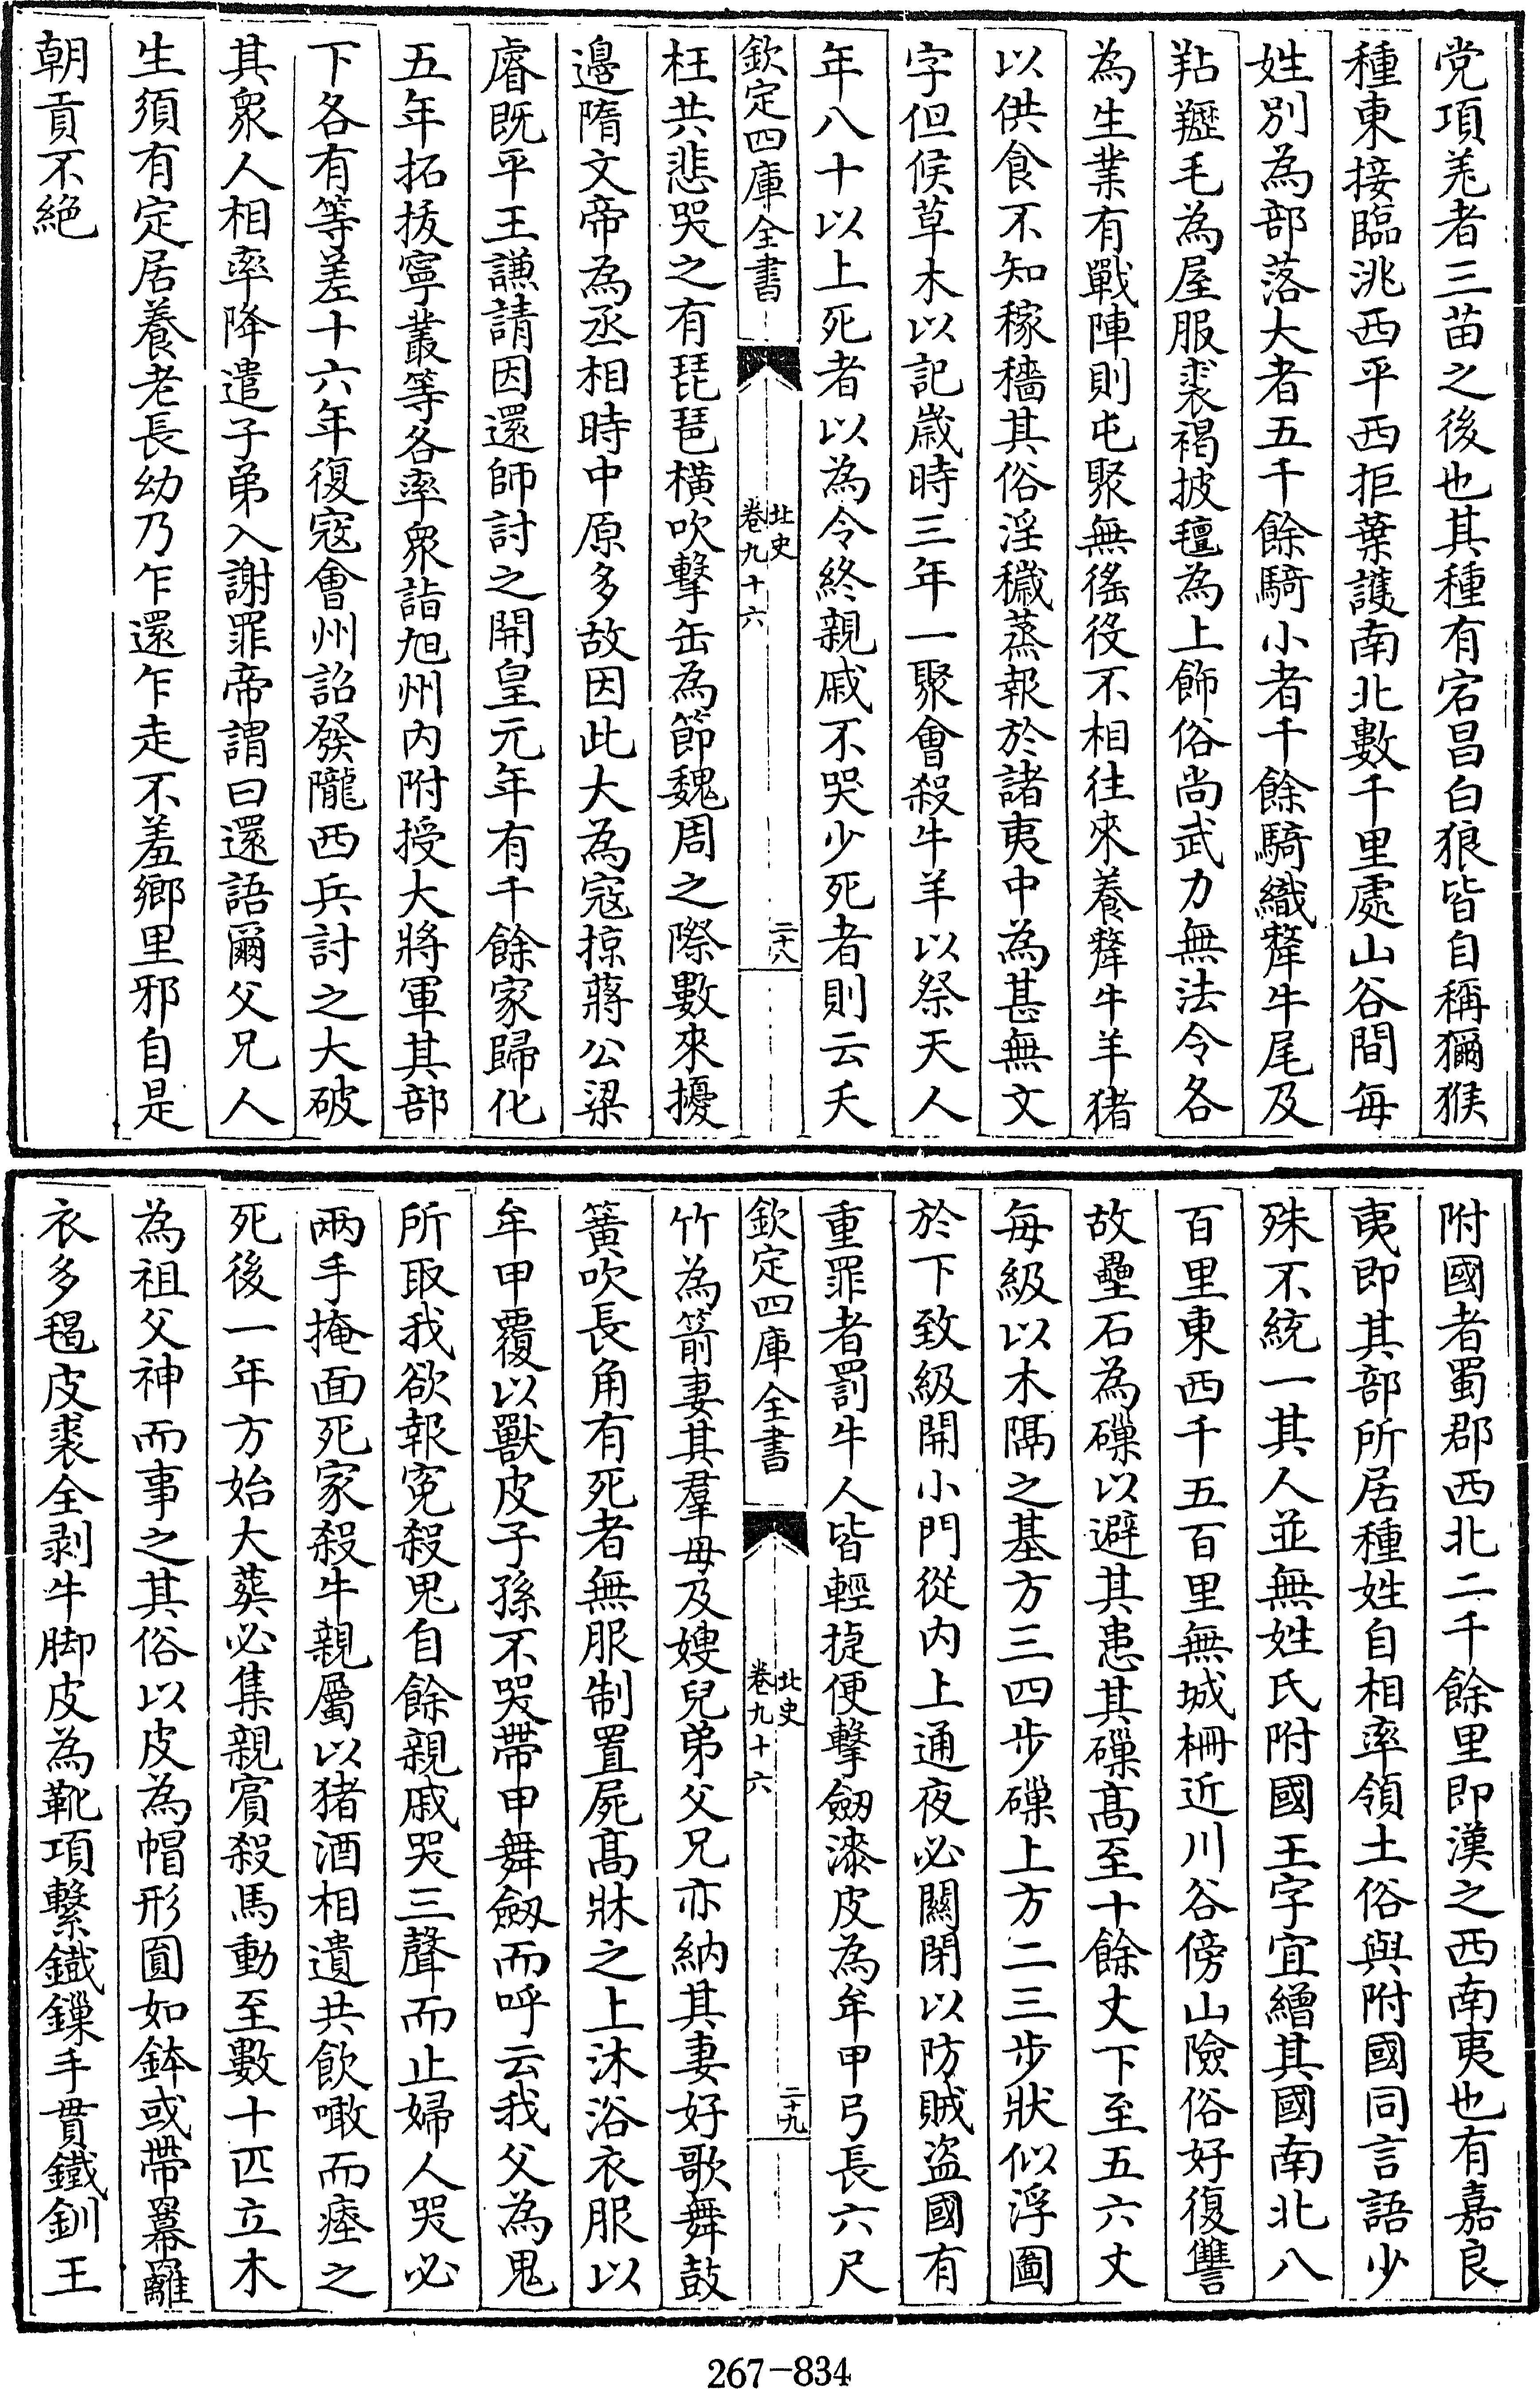 党項羌者三苗之後也其種有宕昌白狼皆自稱獮猴
種東接臨洮西平西拒葉護南北數千里處山谷間每
姓別為部落大者五千餘騎小者千餘騎織犛牛尾及
羖䍽毛為屋服裘褐披氊為上飾俗尚武力無法令各
為生業有戰陣則屯聚無徭役不相往來養犛牛羊猪
以供食不知稼穡其俗淫穢蒸報於諸夷中為甚無文
字但候草木以記嵗時三年一聚會殺牛羊以祭天人
年八十以上死者以為令終親戚不哭少死者則云夭
欽定四庫全書
北史
卷九十六
二十八
枉共悲哭之有琵琶橫吹擊缶為節魏周之際數來擾
邉隋文帝為丞相時中原多故因此大為寇掠蔣公梁
睿既平王謙請因還師討之開皇元年有千餘家歸化
五年拓拔寧叢等各率衆詣旭州内附授大將軍其部
下各有等差十六年復寇會州詔發隴西兵討之大破
其衆人相率降遣子弟入謝罪帝謂曰還語爾父兄人
生須有定居養老長幼乃乍還乍走不羞鄉里邪自是
朝貢不絶
附國者蜀郡西北二千餘里即漢之西南夷也有嘉良
夷即其部所居種姓自相率領土俗與附國同言語少
殊不統一其人並無姓氏附國王字宜繒其國南北八
百里東西千五百里無城柵近川谷傍山險俗好復讐
故壘石為礫以避其患其礫髙至十餘丈下至五六丈
每級以木隔之基方三四步礫上方二三步狀似浮圖
於下致級開小門從内上通夜必關閉以防賊盜國有
重罪者罰牛人皆輕捷便擊劒漆皮為牟甲弓長六尺
欽定四庫全書
北史
卷九十六
二十九
竹為箭妻其羣母及嫂兒弟父兄亦納其妻好歌舞鼓
簧吹長角有死者無服制置屍髙牀之上沐浴衣服以
牟甲覆以獸皮子孫不哭帶甲舞劒而呼云我父為鬼
所取我欲報寃殺鬼自餘親戚哭三聲而止婦人哭必
兩手掩面死家殺牛親屬以猪酒相遺共飲噉而瘞之
死後一年方始大葬必集親賓殺馬動至數十匹立木
為祖父神而事之其俗以皮為帽形圓如鉢或帶羃䍦
衣多毼皮裘全剥牛脚皮為靴項繫鐵鏁手貫鐵釧王
267-834